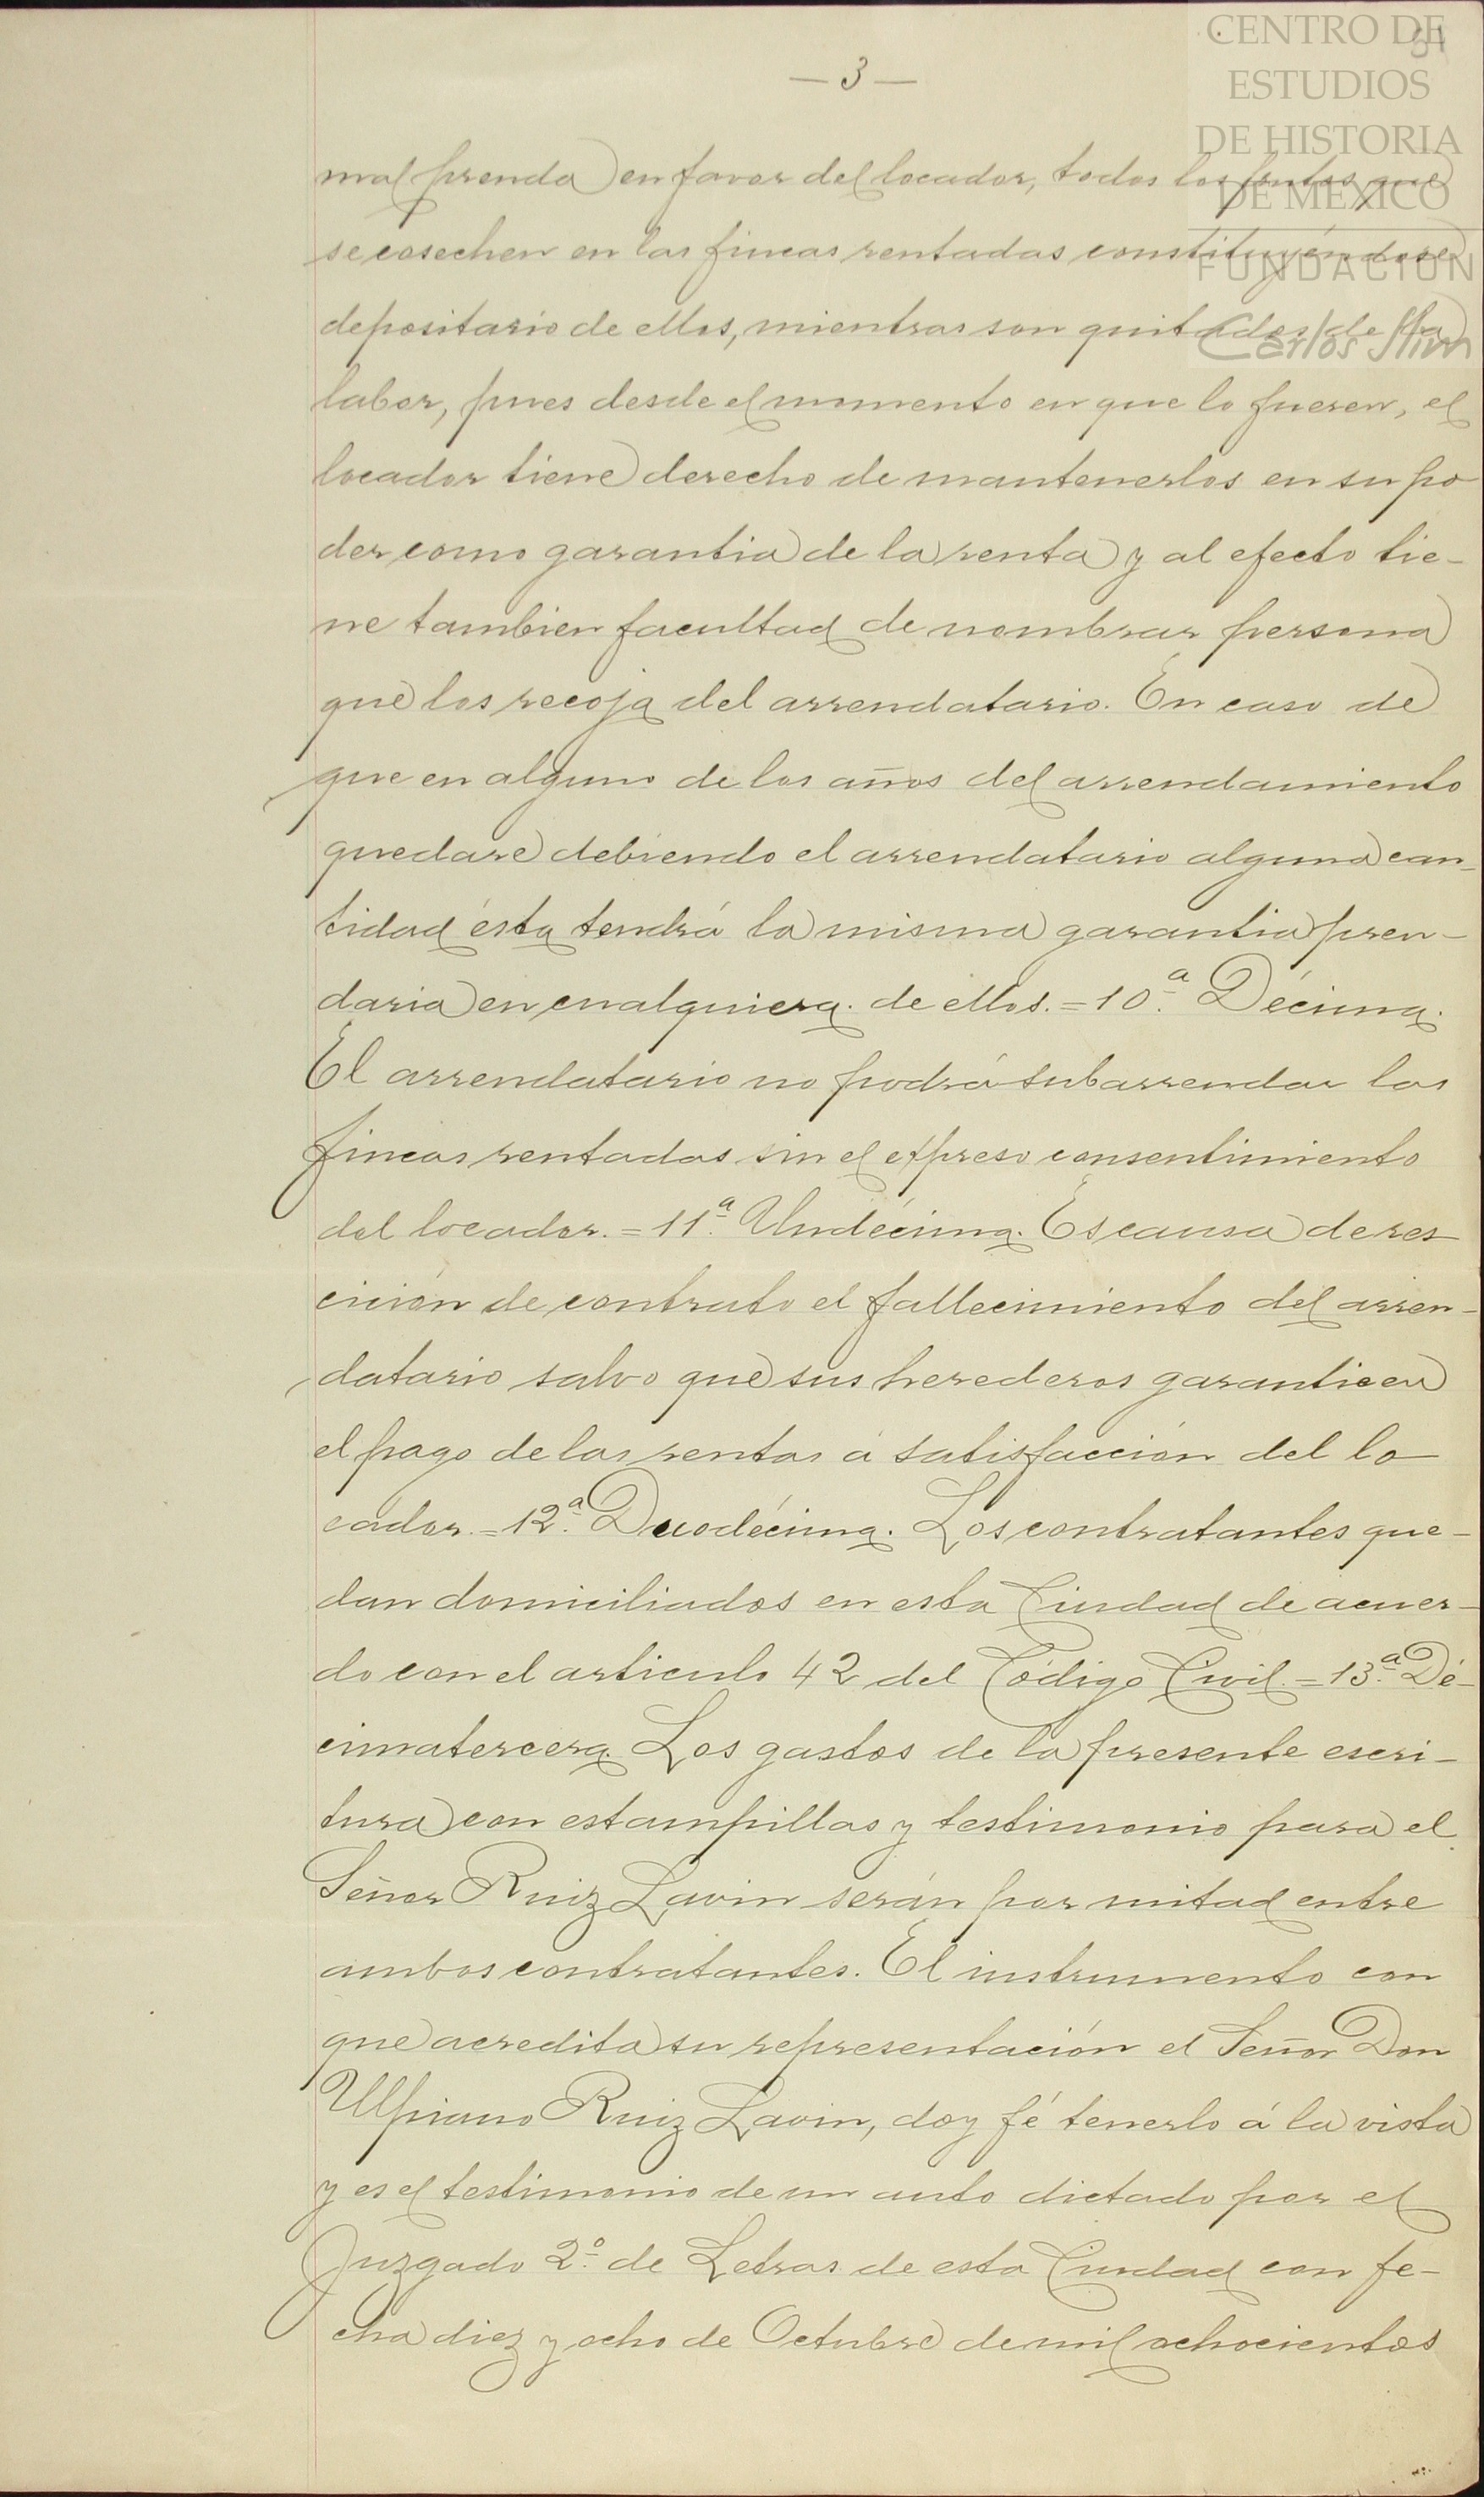 CENTRO DE
ESTUDIOS
DE HISTORIA
DE MEXICO
FUNDACION
Carlos Slim
— 3 —
mal prenda en favor del locador, todos los frutos que
se cosechen en las fincas rentadas constituyéndose
depositario de ellos, mientras son quitados de la
labor, pues desde el momento en que lo fueren, el
locador tiene derecho de mantenerlos en su po
der como garantia de la renta y al efecto tie-
ne tambien facultad de nombrar persona
que los recoja del arrendatario. En caso de
que en alguno de los años del arrendamiento
quedare debiendo el arrendatario alguna can-
tidad ésta tendrá la misma garantia pren-
daria en cualquiera de ellos. = 10.ª Décima.
El arrendatario no podrá subarrendar las
fincas rentadas sin el expreso consentimiento
del locador. = 11.ª Undécima. Es causa de res-
cición de contrato el fallecimiento del arren-
datario salvo que sus herederos garanticen
el pago de las rentas á satisfacción del lo-
cador. = 12.ª Duodécima. Los contratantes que-
dan domiciliados en esta Ciudad de acuer-
do con el articulo 42 del Código Civil. = 13.ª Dé-
cimatercera. Los gastos de la presente escri-
tura con estampillas y testimonio para el
Señor Ruiz Lavin serán por mitad entre
ambos contratantes. El instrumento con
que acredita su representación el Señor Don
Ulpiano Ruiz Lavin, doy fé tenerlo á la vista
y es el testimonio de un auto dictado por el
Juzgado 2º de Letras de esta Ciudad con fe-
cha diez y ocho de Octubre de mil ochocientos